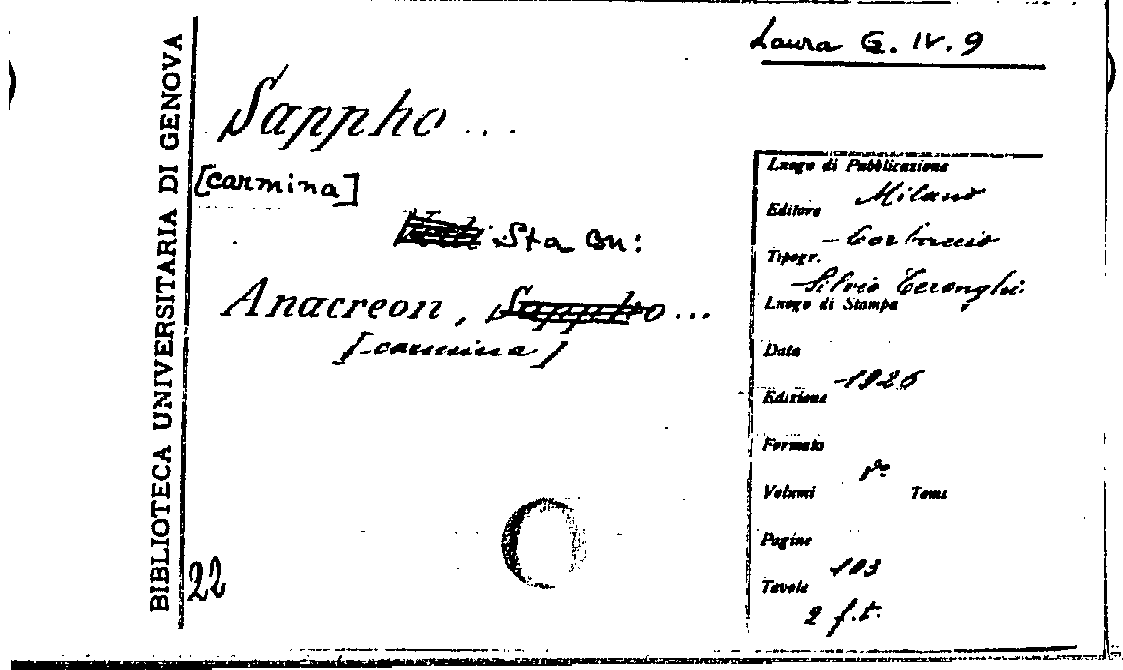 Laura G. IV. 9
BIBLIOTECA UNIVERSITARIA DI GENOVA
Sappho ...
[carmina]
Sta con:
Anacreon, Sappho...
[carmina]
22
Luogo di Pubblicazione
Milano
Editore
Corbaccio
Tipogr.
Silvio Ceronghi.
Luogo di Stampa
Data
1926
Edizione
Formato
8º
Volumi Tomi
Pagine
103
Tavole
2 f.t.